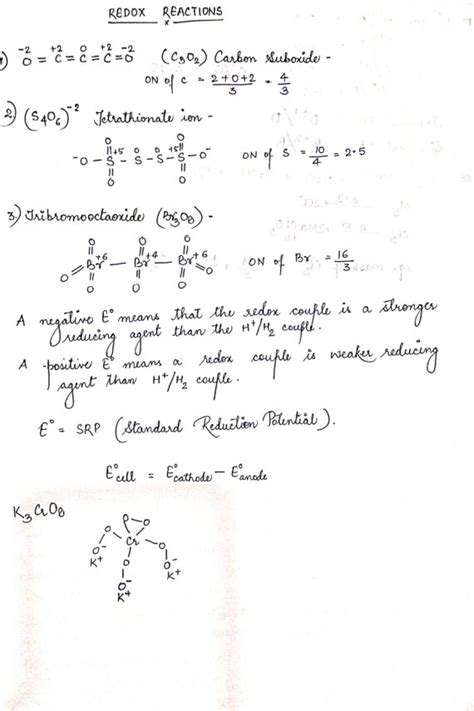 REDOX REACTIONS
-2 +2 0 +2 -2
1) O = C = C = C = O (C3O2) Carbon Suboxide -
ON of C = 2+0+2/3 = 4/3
2) (S4O6)-2 Tetrathionate ion -
O O
+5 0 0 +5
-O - S - S - S - S - O-
O O
ON of S = 10/4 = 2.5
3) Tribromooctaoxide (Br3O8) -
O O O
+6 +4 +6
O = Br - Br - Br = O
O O O
ON of Br = 16/3
A negative E° means that the redox couple is a stronger
reducing agent than the H+/H2 couple.
A positive E° means a redox couple is weaker reducing
agent than H+/H2 couple.
E° = SRP (Standard Reduction Potential).
E°cell = E°cathode - E°anode
K3CrO8
O O
O Cr O
O- O O-
K+ O- K+
K+